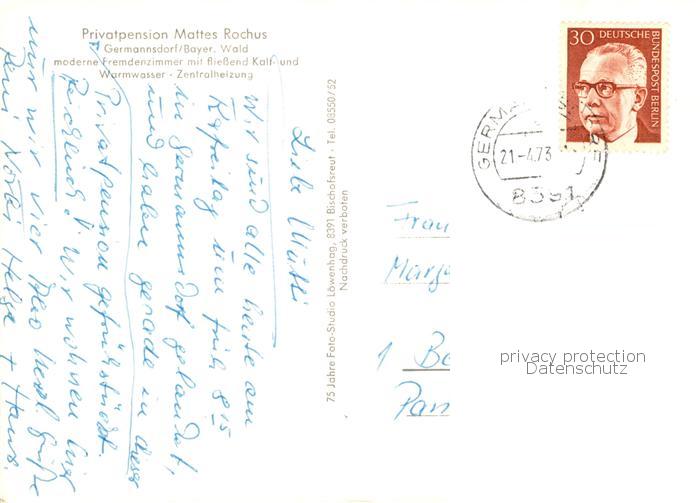 Privatpension Mattes Rochus
Germannsdorf/Bayer. Wald
moderne Fremdenzimmer mit fließend Kalt- und
Warmwasser - Zentralheizung
Liebe Mutti
Wir sind alle heute am
Karfreitag um früh 8 15
in Germannsdorf gelandet,
und haben gerade in dieser
Privatpension gefrühstückt.
Reichlich! Wir wohnen hier
nur wir vier. Also herzl. Grüße
Helga + Hans.
75 Jahre Foto-Studio Löwenhag, 8391 Bischofsreut · Tel. 08550/52
Nachdruck verboten
30 DEUTSCHE BUNDESPOST BERLIN
21-4.73
8391
Frau
1 Be
privacy protection
Datenschutz